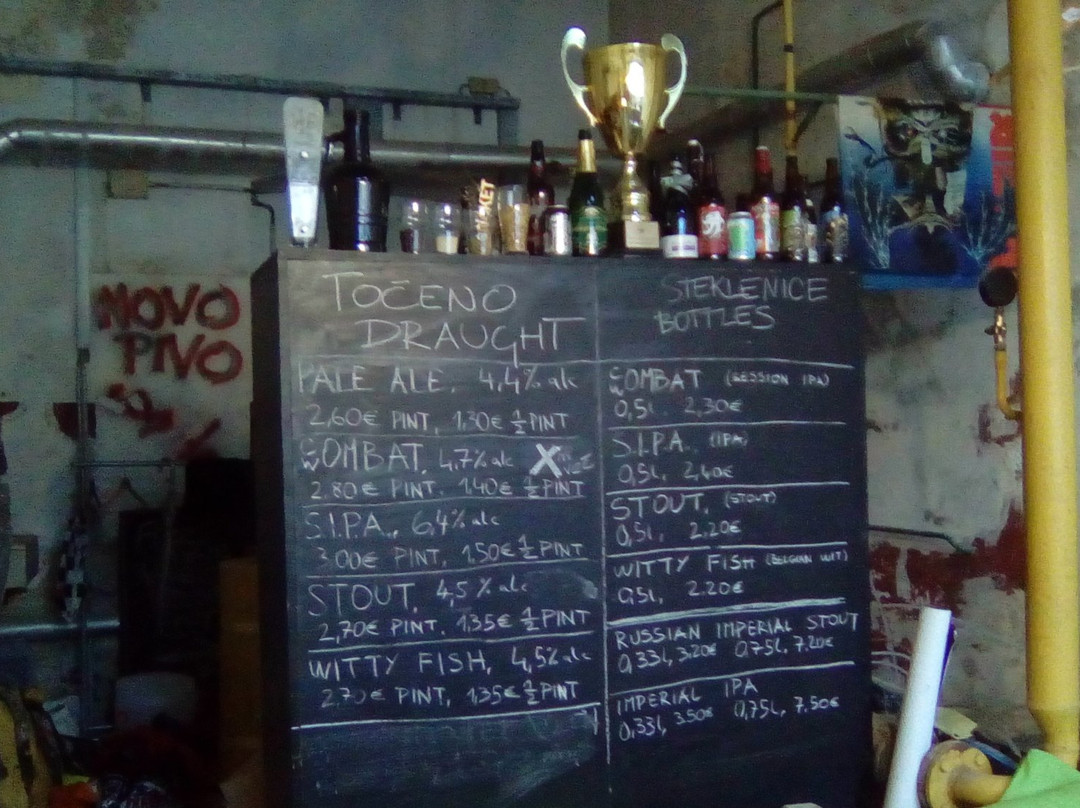 NOVO
PIVO
TOČENO
DRAUGHT
PALE ALE, 4,4% alc
2,60€ PINT, 1,30€ ½ PINT
GWOMBAT, 4,7% alc X
2.80€ PINT, 1,40€ ½ PINT
S.I.P.A., 6,4% alc
3,00€ PINT, 1,50€ ½ PINT
STOUT, 4,5% alc
2,70€ PINT, 1,35€ ½ PINT
WITTY FISH, 4,5% alc
2,70€ PINT, 1,35€ ½ PINT
STEKLENICE
BOTTLES
GWOMBAT (SESSION IPA)
0,5l, 2,30€
S.I.P.A. (IPA)
0,5l, 2,40€
STOUT, (STOUT)
0,5l, 2.20€
WITTY FISH (BELGIAN WIT)
0,5l, 2.20€
RUSSIAN IMPERIAL STOUT
0,33l, 3,20€ 0,75l, 7,20€
IMPERIAL IPA
0,33l, 3,50€ 0,75l, 7,50€